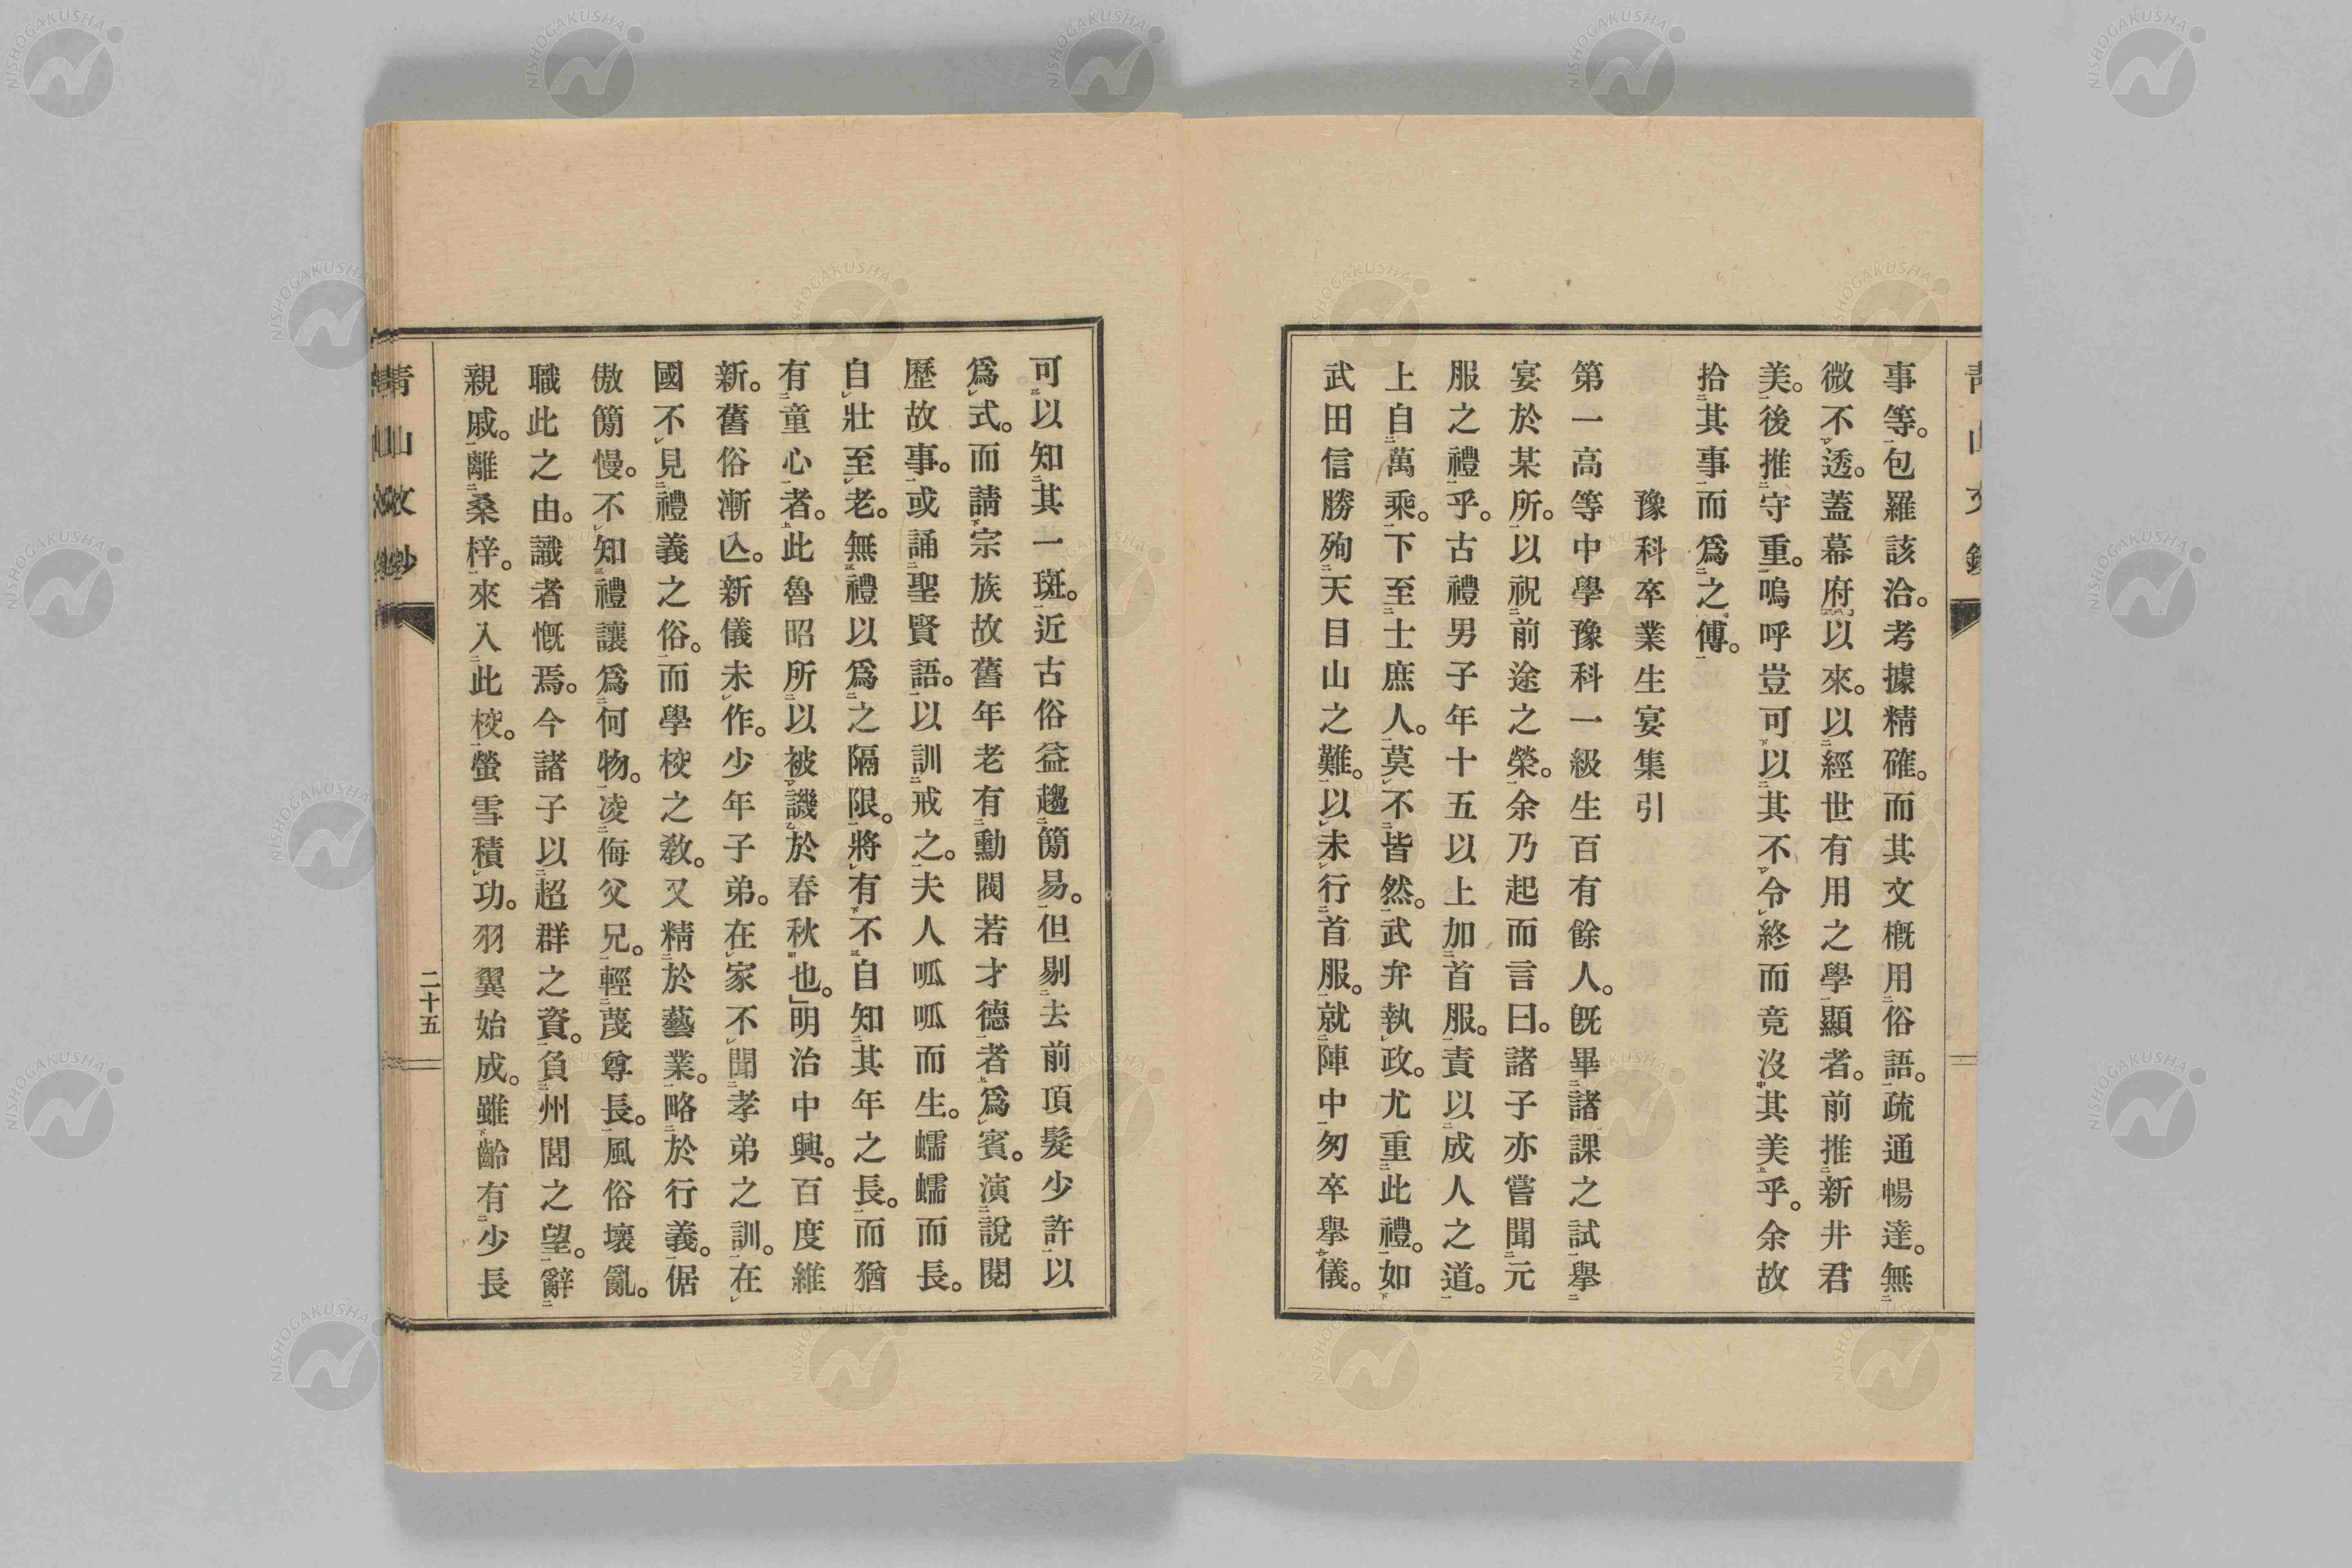 事等。包羅該洽。考據精確。而其文槪用俗語。疏通暢達。無
微不透。蓋幕府以來。以經世有用之學顯者。前推新井君
美。後推守重。嗚呼豈可以其不令終而竟沒其美乎。余故
拾其事而爲之傳。
豫科卒業生宴集引
第一高等中學豫科一級生百有餘人。旣畢諸課之試擧
宴於某所。以祝前途之榮。余乃起而言曰。諸子亦嘗聞元
服之禮乎。古禮男子年十五以上加首服。責以成人之道。
上自萬乘。下至士庶人。莫不皆然。武弁執政。尤重此禮。如
武田信勝殉天目山之難。以未行首服。就陣中匆卒擧儀。
可以知其一斑。近古俗益趨簡易。但剔去前頂髮少許以
爲式。而請宗族故舊年老有勳閥若才德者爲賓。演說閱
歷故事。或誦聖賢語。以訓戒之。夫人呱呱而生。蠕蠕而長。
自壯至老。無禮以爲之隔限。將有不自知其年之長。而猶
有童心者。此魯昭所以被譏於春秋也。」明治中興。百度維
新。舊俗漸亾。新儀未作。少年子弟。在家不聞孝弟之訓。在
國不見禮義之俗。而學校之敎。又精於藝業。略於行義。倨
傲簡慢。不知禮讓爲何物。凌侮父兄。輕蔑尊長。風俗壞亂。
職此之由。識者慨焉。今諸子以超群之資。負州閭之望。辭
親戚。離桑梓。來入此校。螢雪積功。羽翼始成。雖齡有少長
靑山文鈔
二十五
NISHOGAKUSHA